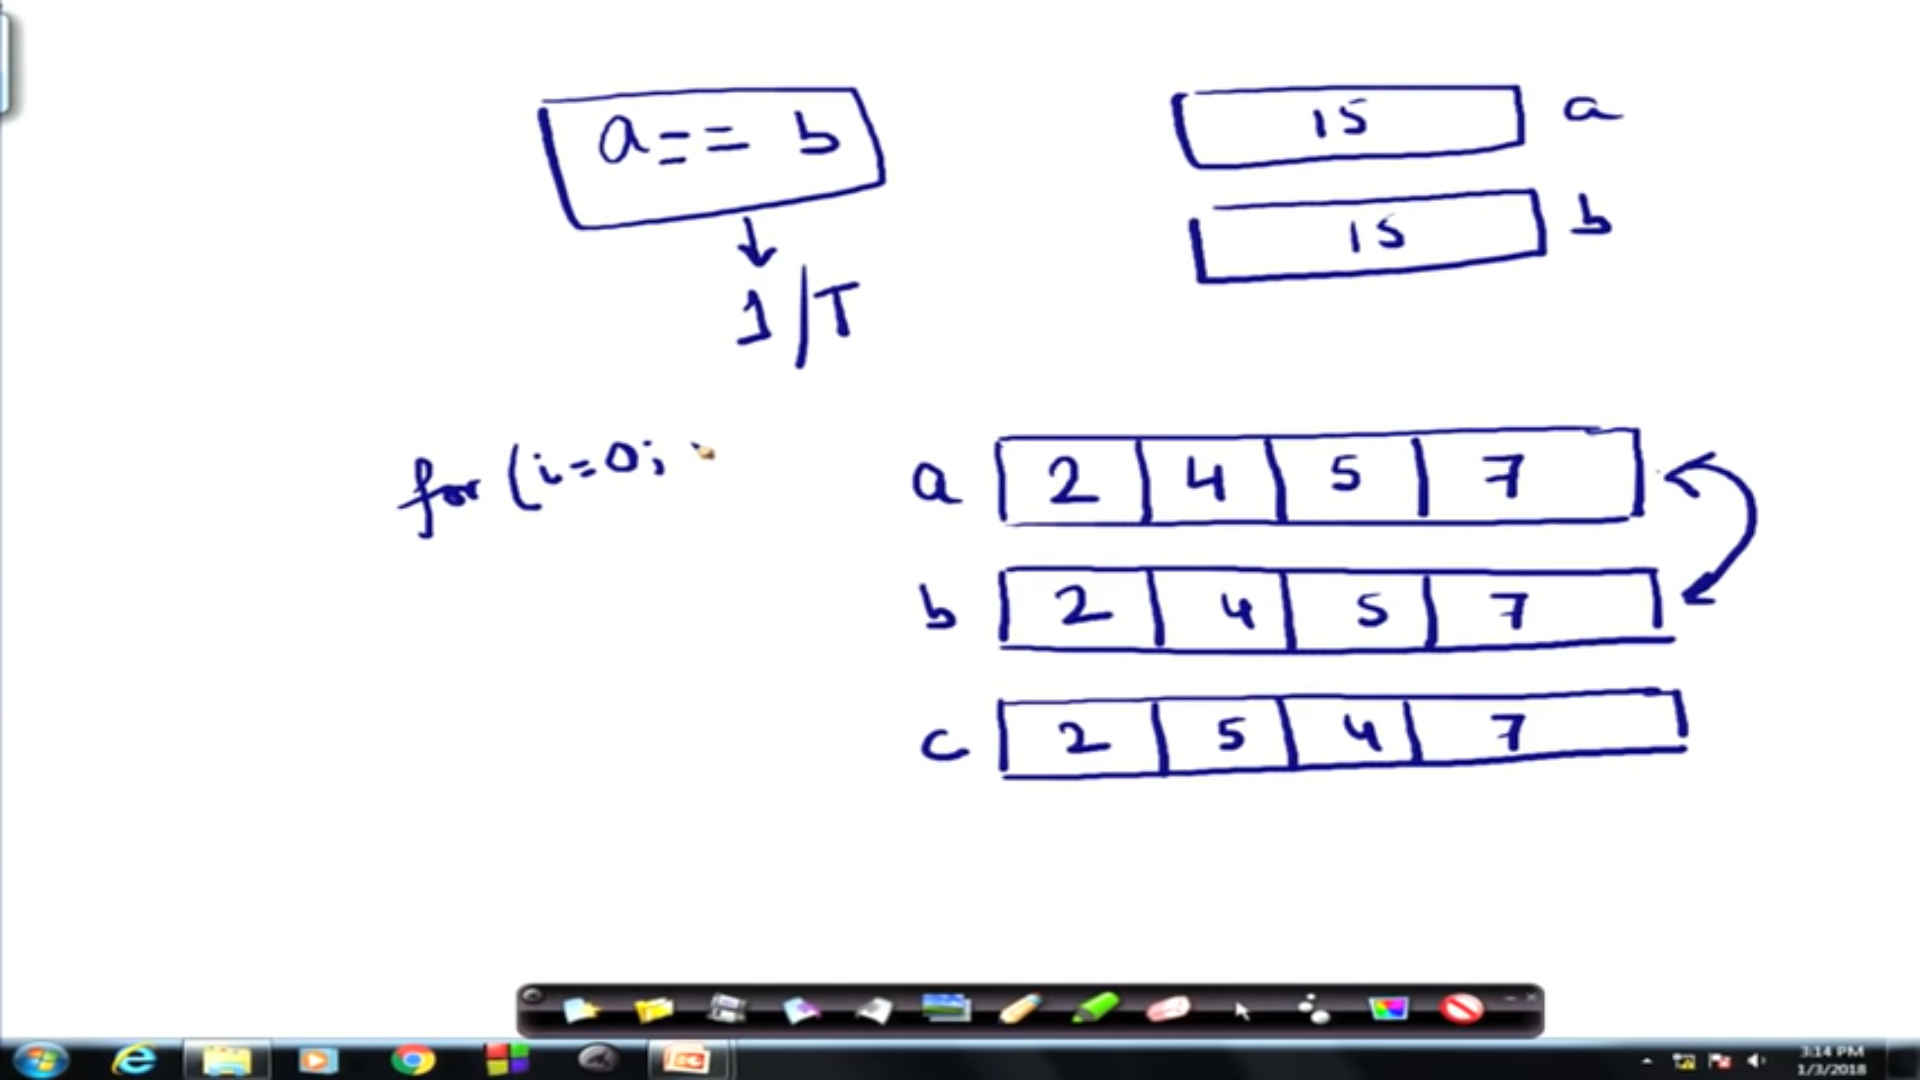 a == b
15 a
15 b
1/T
for (i=0;
a 2 4 5 7
b 2 4 5 7
c 2 5 4 7
3:14 PM
1/3/2018